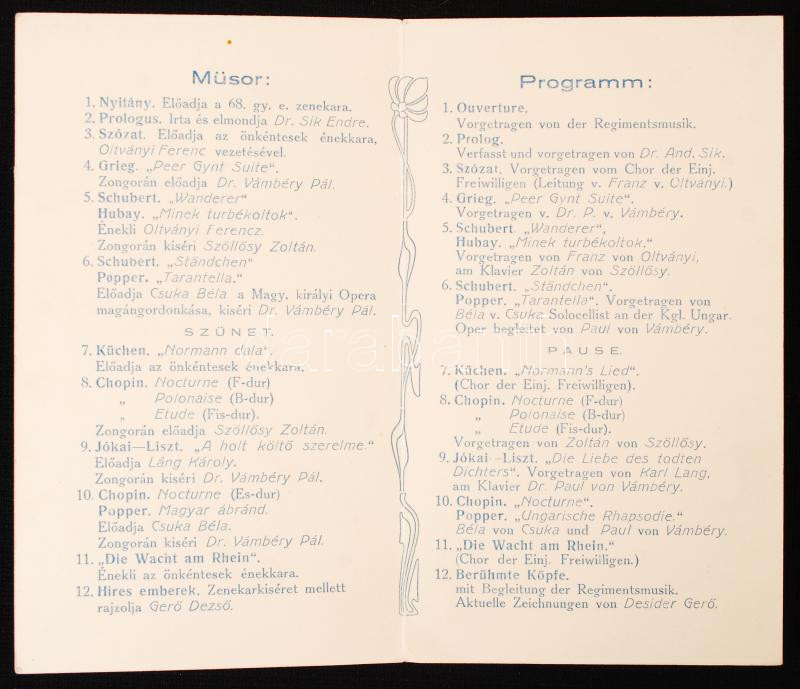 Műsor:
1. Nyitány. Előadja a 68. gy. e. zenekara.
2. Prologus. Irta és elmondja Dr. Sik Endre.
3. Szózat. Előadja az önkéntesek énekkara,
Oltványi Ferenc vezetésével.
4. Grieg. „Peer Gynt Suite“.
Zongorán előadja Dr. Vámbéry Pál.
5. Schubert. „Wanderer“
Hubay. „Minek turbékoltok“.
Énekli Oltványi Ferencz.
Zongorán kiséri Szöllősy Zoltán.
6. Schubert. „Ständchen“
Popper. „Tarantella.“
Előadja Csuka Béla a Magy. királyi Opera
magángordonkása, kiséri Dr. Vámbéry Pál.
SZÜNET.
7. Küchen. „Normann dala“.
Előadja az önkéntesek énekkara.
8. Chopin. Nocturne (F-dur)
„ Polonaise (B-dur)
„ Etude (Fis-dur).
Zongorán előadja Szöllősy Zoltán.
9. Jókai—Liszt. „A holt költő szerelme“
Előadja Láng Károly.
Zongorán kiséri Dr. Vámbéry Pál.
10. Chopin. Nocturne (Es-dur)
Popper. Magyar ábránd.
Előadja Csuka Béla.
Zongorán kiséri Dr. Vámbéry Pál.
11. „Die Wacht am Rhein“.
Énekli az önkéntesek énekkara.
12. Hires emberek. Zenekarkiséret mellett
rajzolja Gerő Dezső.
Programm:
1. Ouverture.
Vorgetragen von der Regimentsmusik.
2. Prolog.
Verfasst und vorgetragen von Dr. And. Sik.
3. Szózat. Vorgetragen vom Chor der Einj.
Freiwilligen (Leitung v. Franz v. Oltványi.)
4. Grieg. „Peer Gynt Suite“.
Vorgetragen v. Dr. P. v. Vámbéry.
5. Schubert. „Wanderer“,
Hubay. „Minek turbékoltok.“
Vorgetragen von Franz von Oltványi,
am Klavier Zoltán von Szöllősy.
6. Schubert. „Ständchen“.
Popper. „Tarantella“. Vorgetragen von
Béla v. Csuka Solocellist an der Kgl. Ungar.
Oper begleitet von Paul von Vámbéry.
PAUSE.
7. Küchen. „Normann's Lied“.
(Chor der Einj. Freiwilligen).
8. Chopin. Nocturne (F-dur)
„ Polonaise (B-dur)
„ Etude (Fis-dur).
Vorgetragen von Zoltán von Szöllősy.
9. Jókai—Liszt. „Die Liebe des todten
Dichters“. Vorgetragen von Karl Lang,
am Klavier Dr. Paul von Vámbéry.
10. Chopin. „Nocturne“.
Popper. „Ungarische Rhapsodie.“
Béla von Csuka und Paul von Vámbéry.
11. „Die Wacht am Rhein.“
(Chor der Einj. Freiwilligen.)
12. Berühmte Köpfe.
mit Begleitung der Regimentsmusik.
Aktuelle Zeichnungen von Desider Gerő.
darabanth